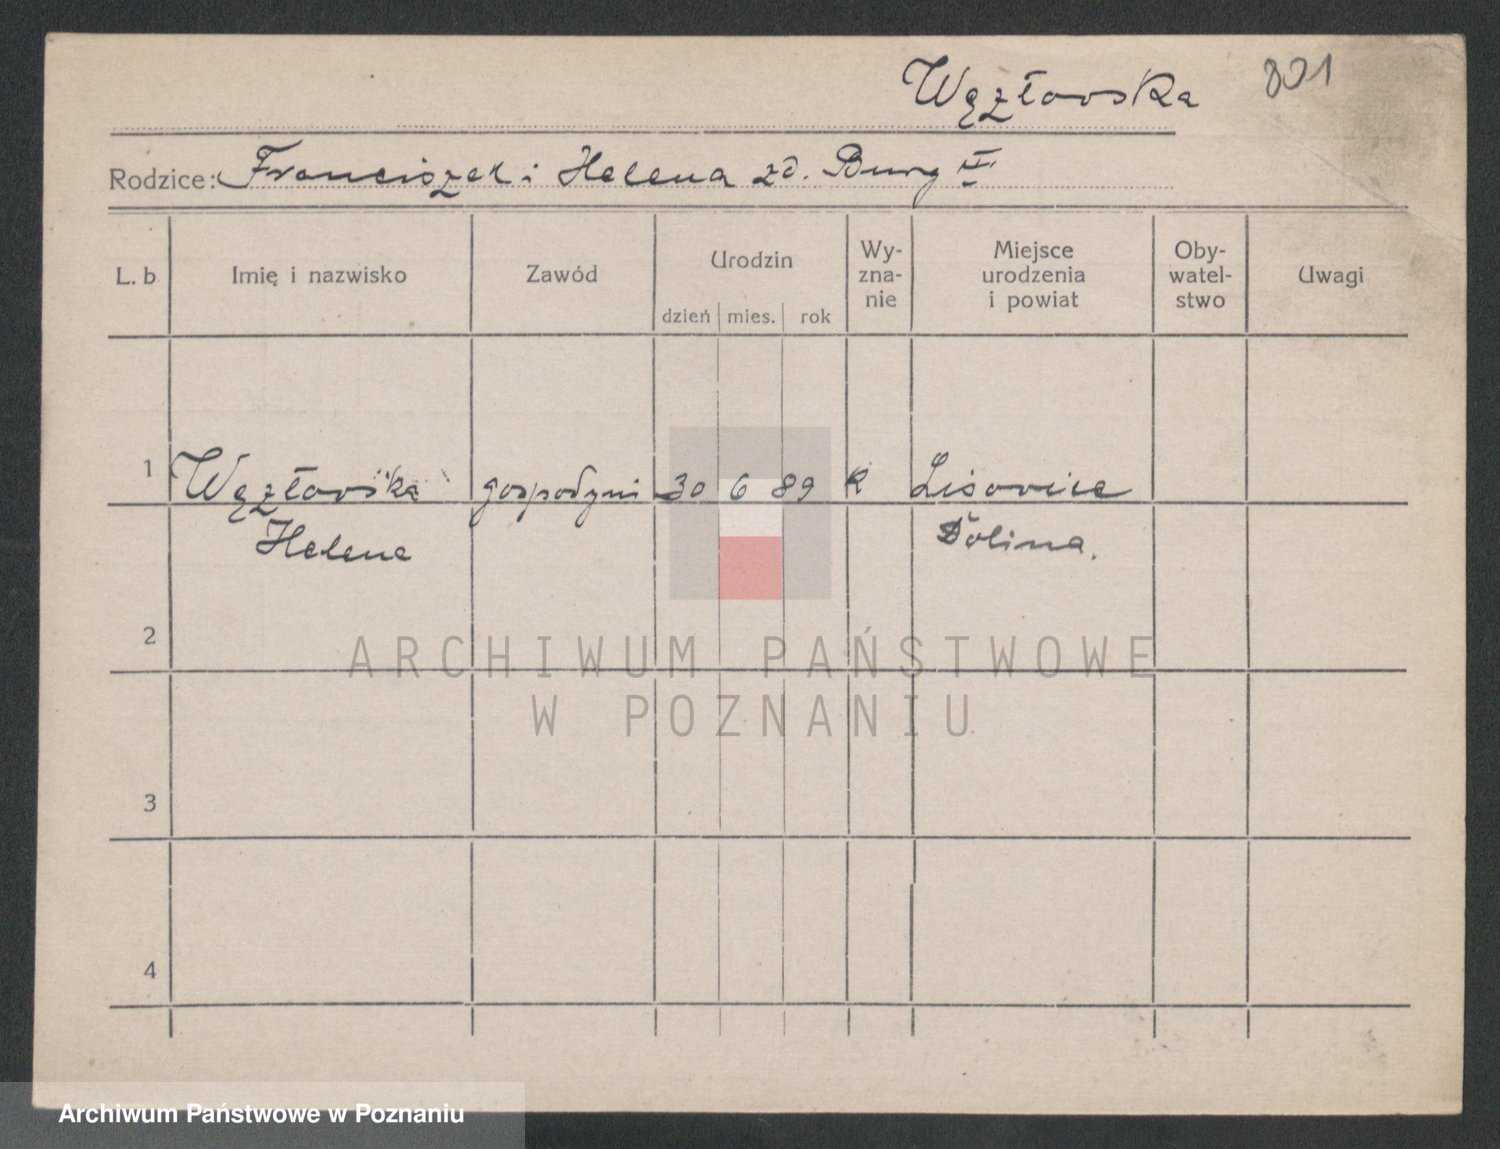 Węzłowska 801
Rodzice: Franciszek i Helena zd. Burg VI
L. b Imię i nazwisko Zawód Urodzin dzień mies. rok Wy-zna-nie Miejsce urodzenia i powiat Oby-watel-stwo Uwagi
1 Węzłowska gospodyni 30 6 89 K Lisowice
Helena Dolina.
2
ARCHIWUM PAŃSTWOWE
W POZNANIU
3
4
Archiwum Państwowe w Poznaniu